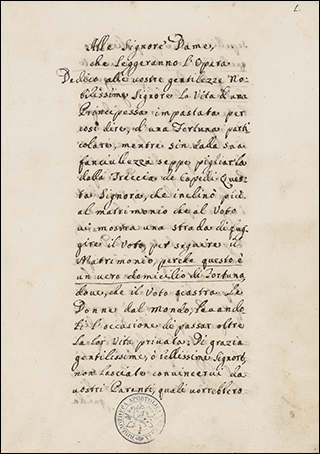 1.
Alle Signore Dame,
che leggeranno l'Opera
Dedico alle vostre gentilezze No-
bilissime Signore La Vita d'una
Prencipessa impastata per
così dire, d'una Fortuna parti
colare, mentre sin dalla sua
fanciulezza seppe pigliarla
dalla Treccia de Capelli. Ques
ta Signora, che inclinò più
al matrimonio che al Voto
vi mostra una strada di fug
gire il Voto, per seguire il
Matrimonio, perche questo è
un vero domicilio di Fortuna,
dove, che il Voto
Donne dal mondo, levando
li l'occasione di passar oltre
la lor Vita privata. Di grazia
gentilissime, o bellissime Signore
non lasciate convincervi da
vostri Parenti, quali vorrebbero
BIBLIOTHECA APOSTOLICA